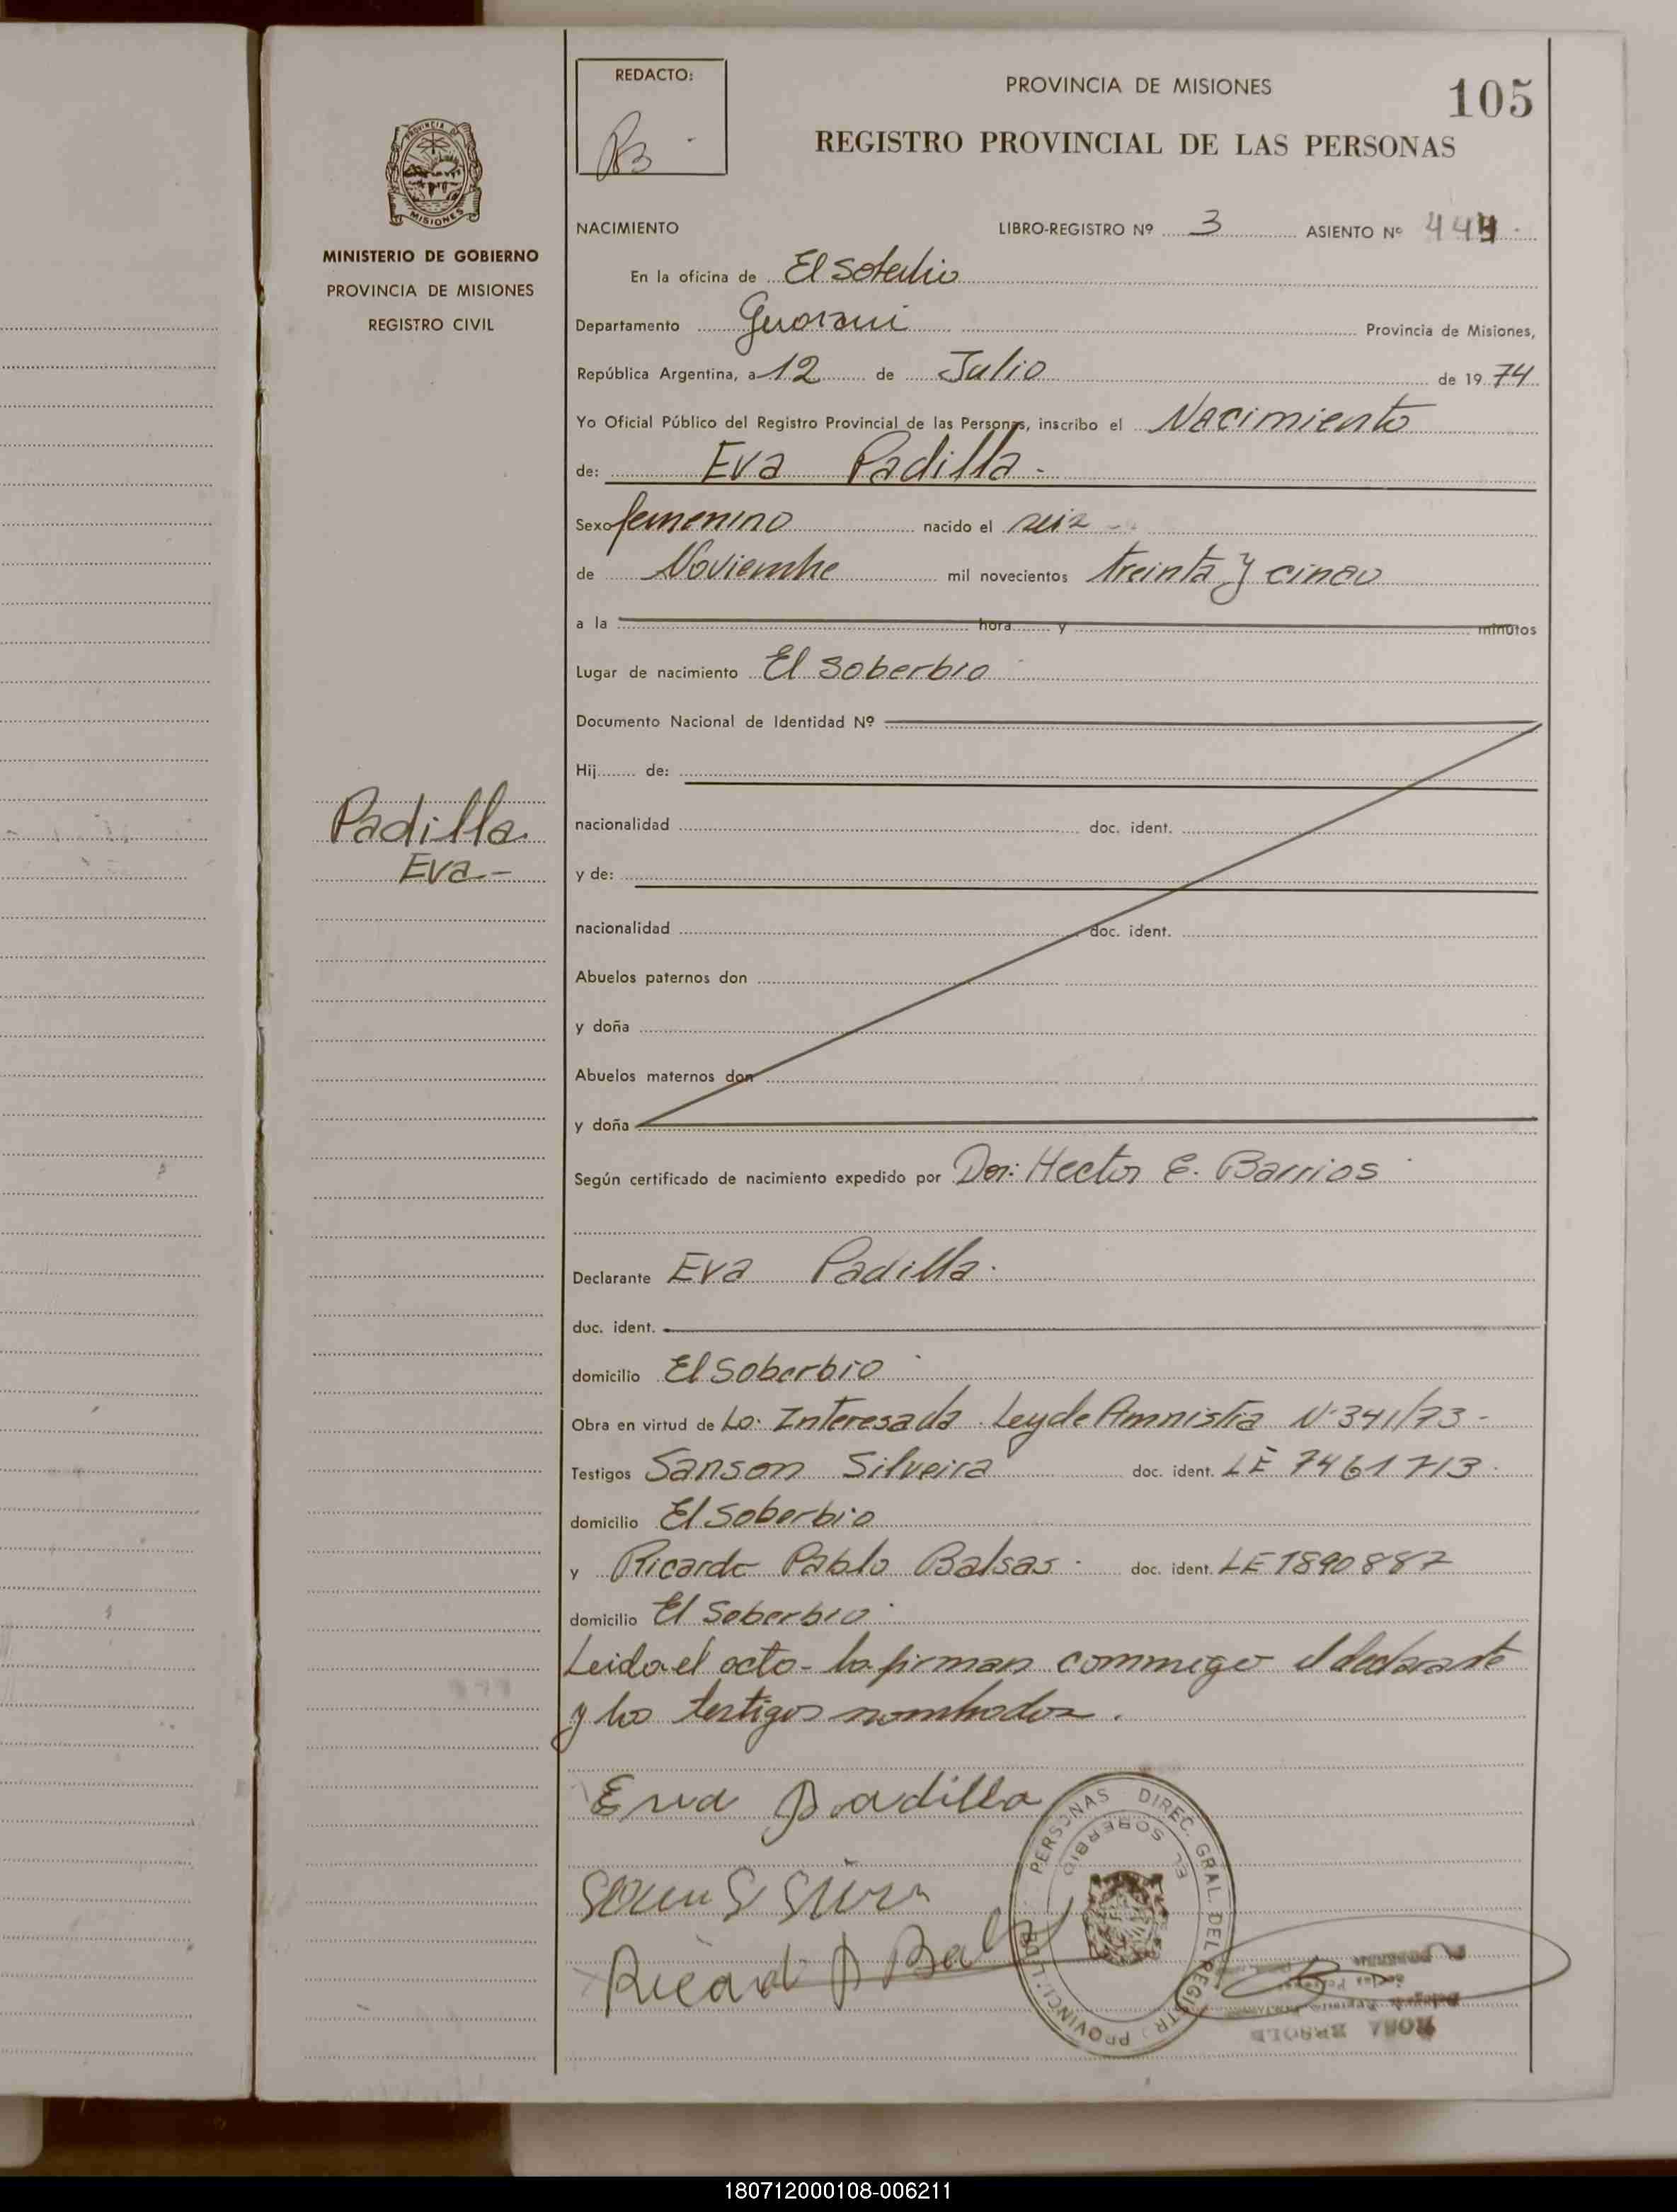 REDACTO:
PROVINCIA DE MISIONES
105
REGISTRO PROVINCIAL DE LAS PERSONAS
PROVINCIA DE
MISIONES
MINISTERIO DE GOBIERNO
PROVINCIA DE MISIONES
REGISTRO CIVIL
NACIMIENTO LIBRO-REGISTRO Nº 3 ASIENTO Nº 444
En la oficina de El Soberbio
Departamento Guarani Provincia de Misiones,
República Argentina, a 12 de Julio de 1974
Yo Oficial Público del Registro Provincial de las Personas, inscribo el Nacimiento
de: Eva Padilla.-
Sexo femenino nacido el seis
de Noviembre mil novecientos treinta y cinco
a la hora y minutos
Lugar de nacimiento El Soberbio
Documento Nacional de Identidad Nº
Hij de:
nacionalidad doc. ident.
y de:
nacionalidad doc. ident.
Abuelos paternos don
y doña
Abuelos maternos don
y doña
Padilla
Eva.-
Según certificado de nacimiento expedido por Dor: Hector E. Barrios
Declarante Eva Padilla.
doc. ident.
domicilio El Soberbio
Obra en virtud de La: Interesada. Ley de Amnistia Nº 341/73-
Testigos Sanson Silveira doc. ident. LE 7461713.
domicilio El Soberbio
y Ricardo Pablo Balsas. doc. ident. LE 7890887
domicilio El Soberbio
Leido el acto- la firman conmigo el declarante
y los testigos nombrados.
Eva Padilla
Ricard P Bal
DIREC. GRAL. DEL REGISTRO PROVINCIAL PERSONAS
EL SOBERBIO
180712000108-006211